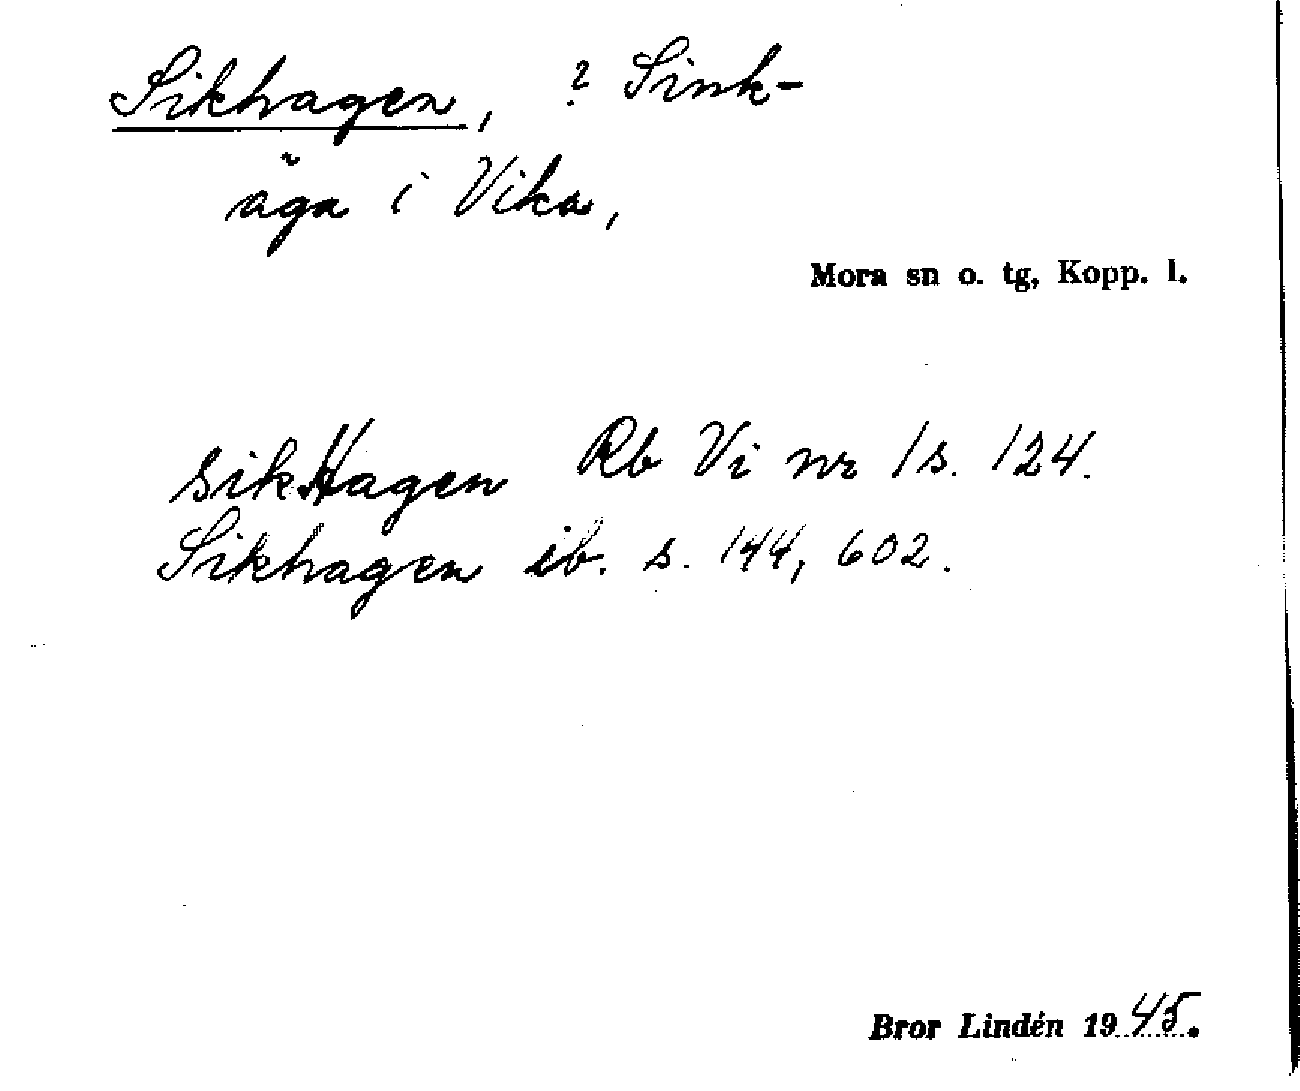 Sikhagen, ? Sink-
äga i Vika,
Mora sn o. tg, Kopp. l.
sikHagen Rb Vi nr 1 s. 124.
Sikhagen ib. s. 144, 602.
Bror Lindén 1945.